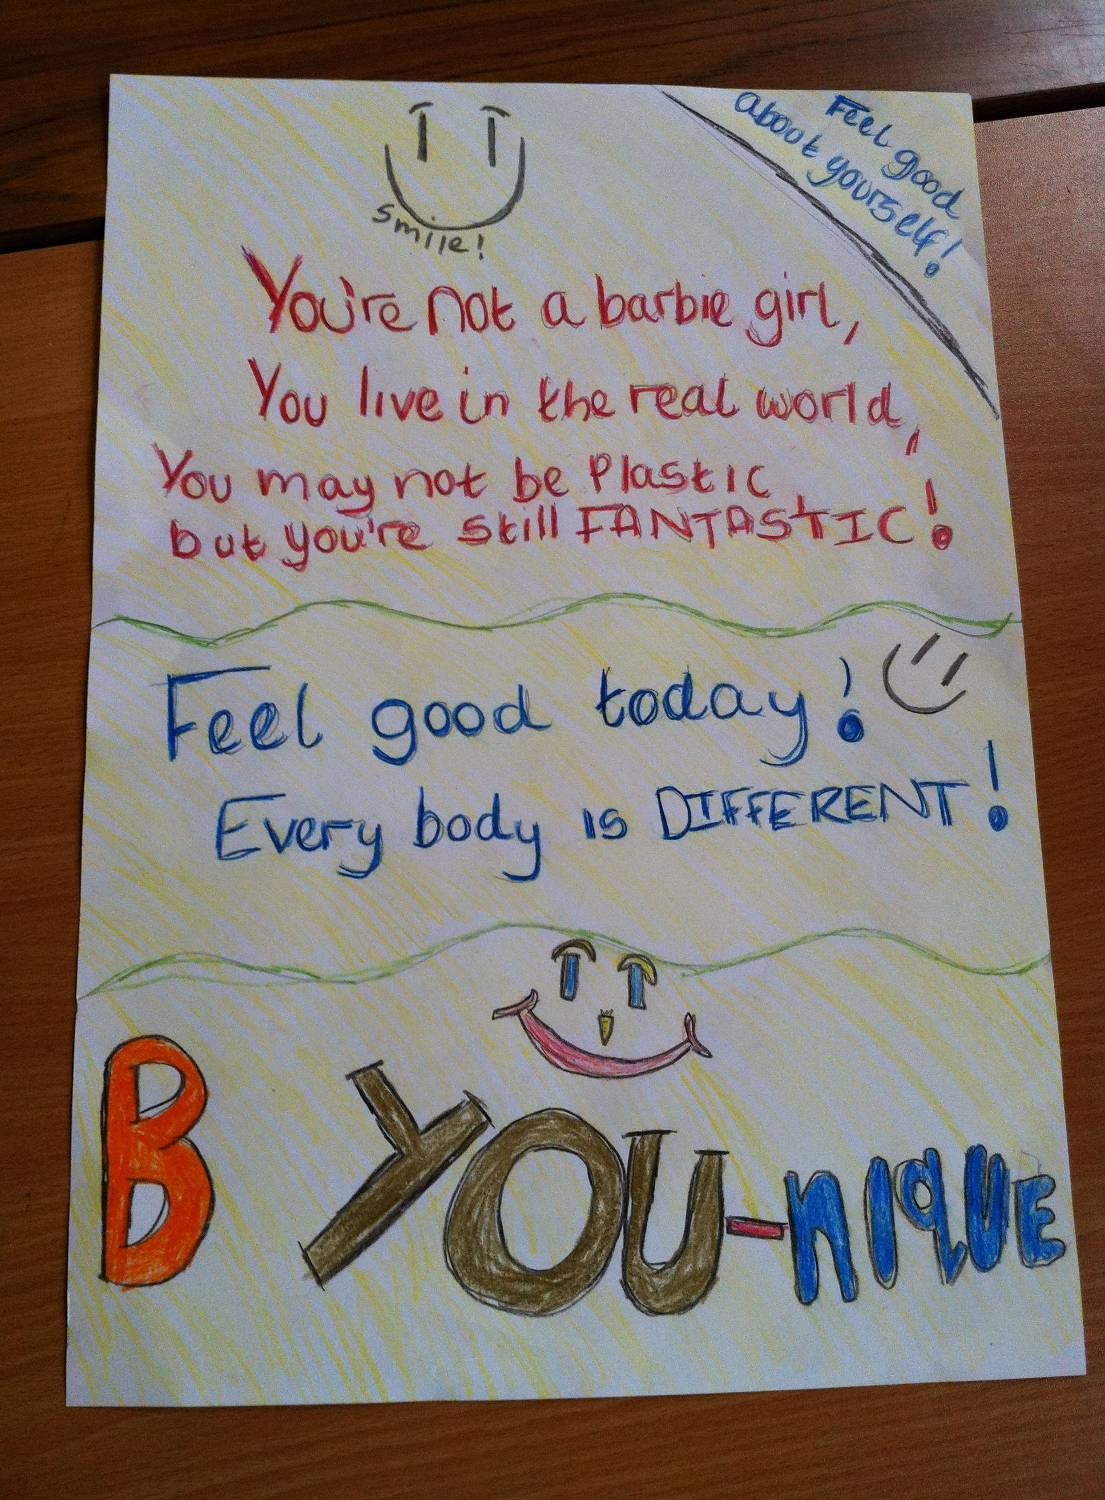 Feel good
about yourself!
smile!
You're not a barbie girl,
You live in the real world,
You may not be Plastic
but you're still FANTASTIC!
Feel good today!
Every body is DIFFERENT!
B YOU-nIqUE